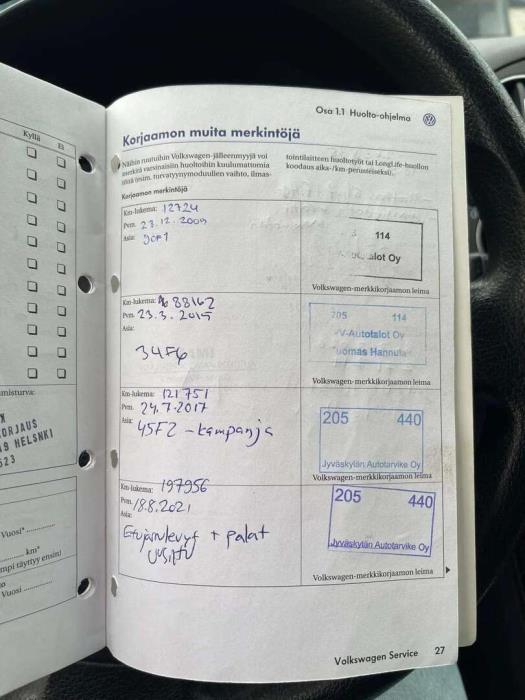 Kyllä
Ei
misturva:
ORJAUS
19 HELSNKI
523
Vuosi*
km*
mpi täyttyy ensin)
Vuosi
Osa 1.1 Huolto-ohjelma
Korjaamon muita merkintöjä
Näihin ruutuihin Volkswagen-jälleenmyyjä voi
merkitä varsinaisiin huoltoihin kuulumattomia
töitä (esim. turvatyynymoduulien vaihto, ilmas-
tointilaitteen huoltotyöt tai LongLife-huollon
koodaus aika-/km-perusteiseksi).
Korjaamon merkintöjä
Km-lukema: 12724
Pvm. 23.12.2009
Asia:
114
alot Oy
Volkswagen-merkkikorjaamon leima
Km-lukema: 88162
Pvm. 23.3.2015
Asia:
34F6
205 114
V-Autotalot Oy
Tuomas Hannula
Volkswagen-merkkikorjaamon leima
Km-lukema: 121751
Pvm. 24.7.2017
Asia: 45F2 - kampanja
205 440
Jyväskylän Autotarvike Oy
Volkswagen-merkkikorjaamon leima
Km-lukema: 197956
Pvm. 18.8.2021
Asia:
Etujarrulevyt + palat
uusittu
205 440
Jyväskylän Autotarvike Oy
Volkswagen-merkkikorjaamon leima
Volkswagen Service 27